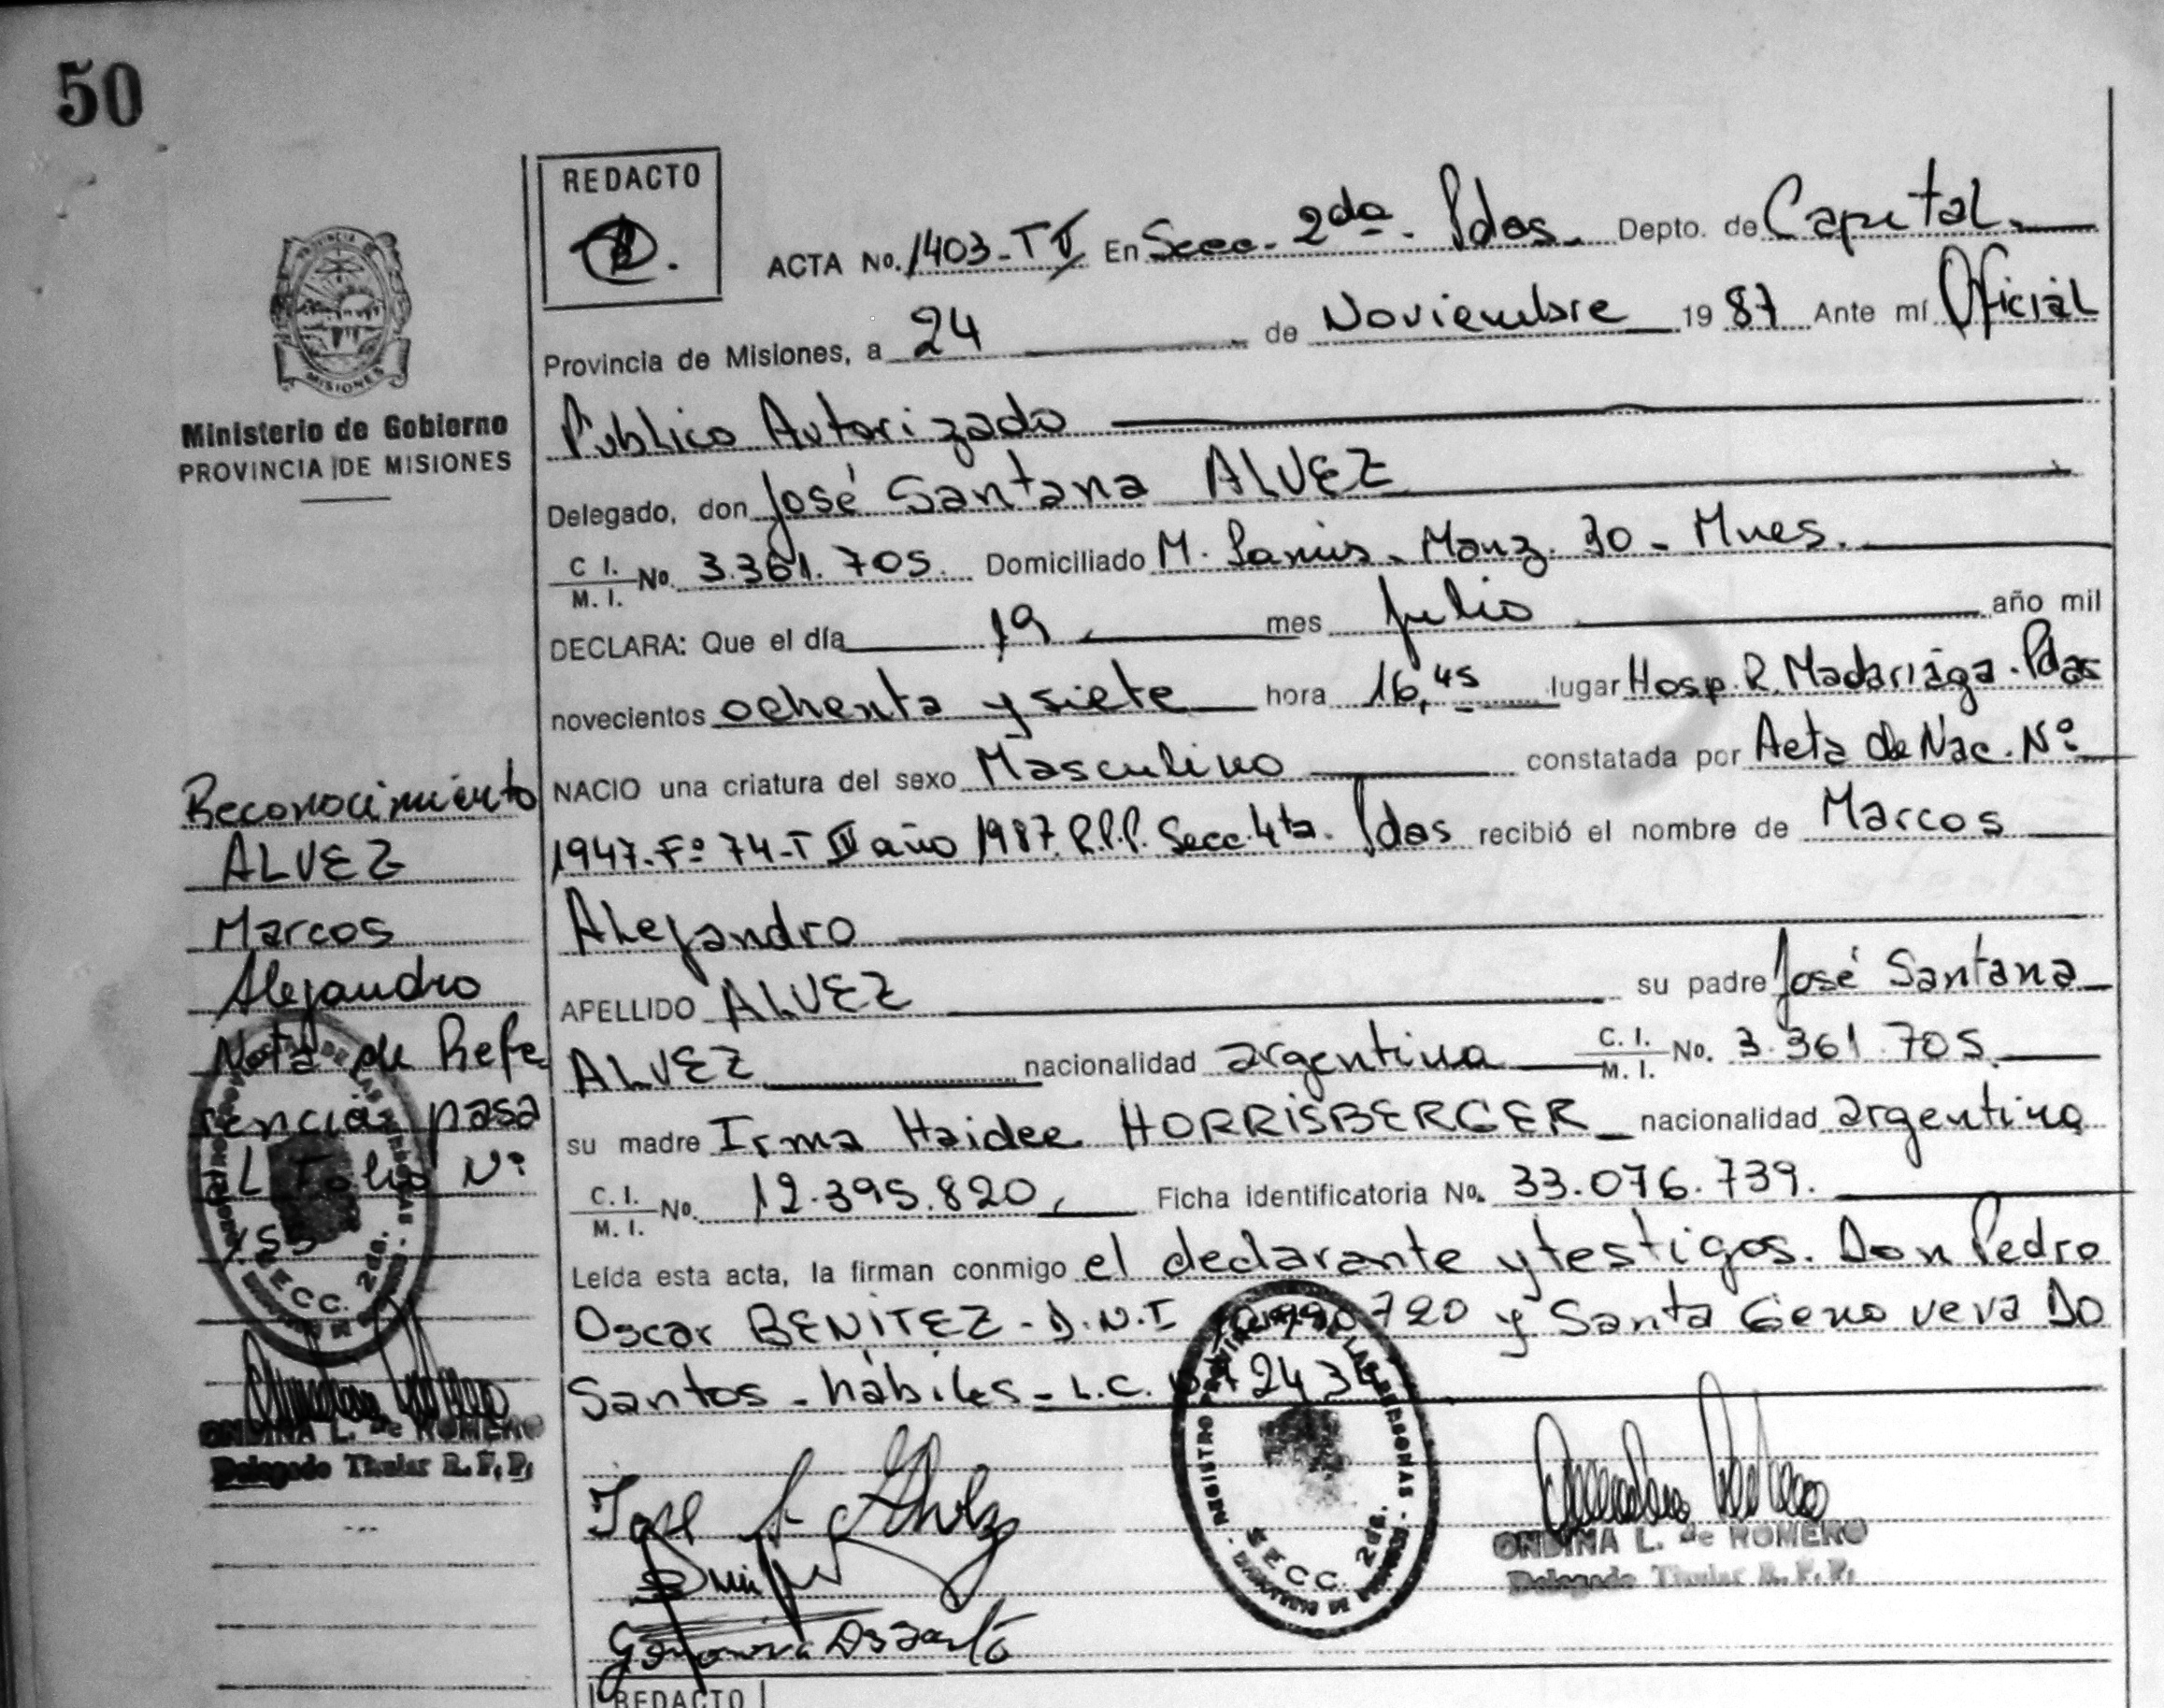 50
REDACTO
ACTA No. 1403-T V En Secc. 2da. Pdas. Depto. de Capital.
Provincia de Misiones, a 24 de Noviembre 1987 Ante mí Oficial
Público Autorizado
Delegado, don José Santana ALVEZ
C I. / M. I. No. 3.361.705. Domiciliado M. Lanus - Manz. 30 - Mnes.
DECLARA: Que el día 19 mes Julio año mil
novecientos ochenta y siete hora 16,45 lugar Hosp. R. Madariaga. Pdas
NACIO una criatura del sexo Masculino constatada por Acta de Nac. Nº
1947-Fº 74-T IV año 1987. R.P.P. Secc. 4ta. Pdas recibió el nombre de Marcos
Alejandro
APELLIDO ALVEZ su padre José Santana
ALVEZ nacionalidad argentina C. I. / M. I. No. 3.361.705
su madre Irma Haidee HORRISBERGER nacionalidad argentina
C. I. / M. I. No. 12.395.820, Ficha identificatoria No. 33.076.739.
Leída esta acta, la firman conmigo el declarante y testigos. Don Pedro
Oscar BENITEZ - D.N.I 720 y Santa Genoveva Do
Santos - hábiles - L.C.
ONDINA L. de ROMERO
Delegado Titular R. P. P.
REDACTO
Ministerio de Gobierno
PROVINCIA DE MISIONES
MISIONES
Reconocimiento
ALVEZ
Marcos
Alejandro
Nota de Refe
rencias pasa
al Folio Nº
155
SECC. 2da.
ONDINA L. de ROMERO
Delegado Titular R. P. P.
SECC. 2da.